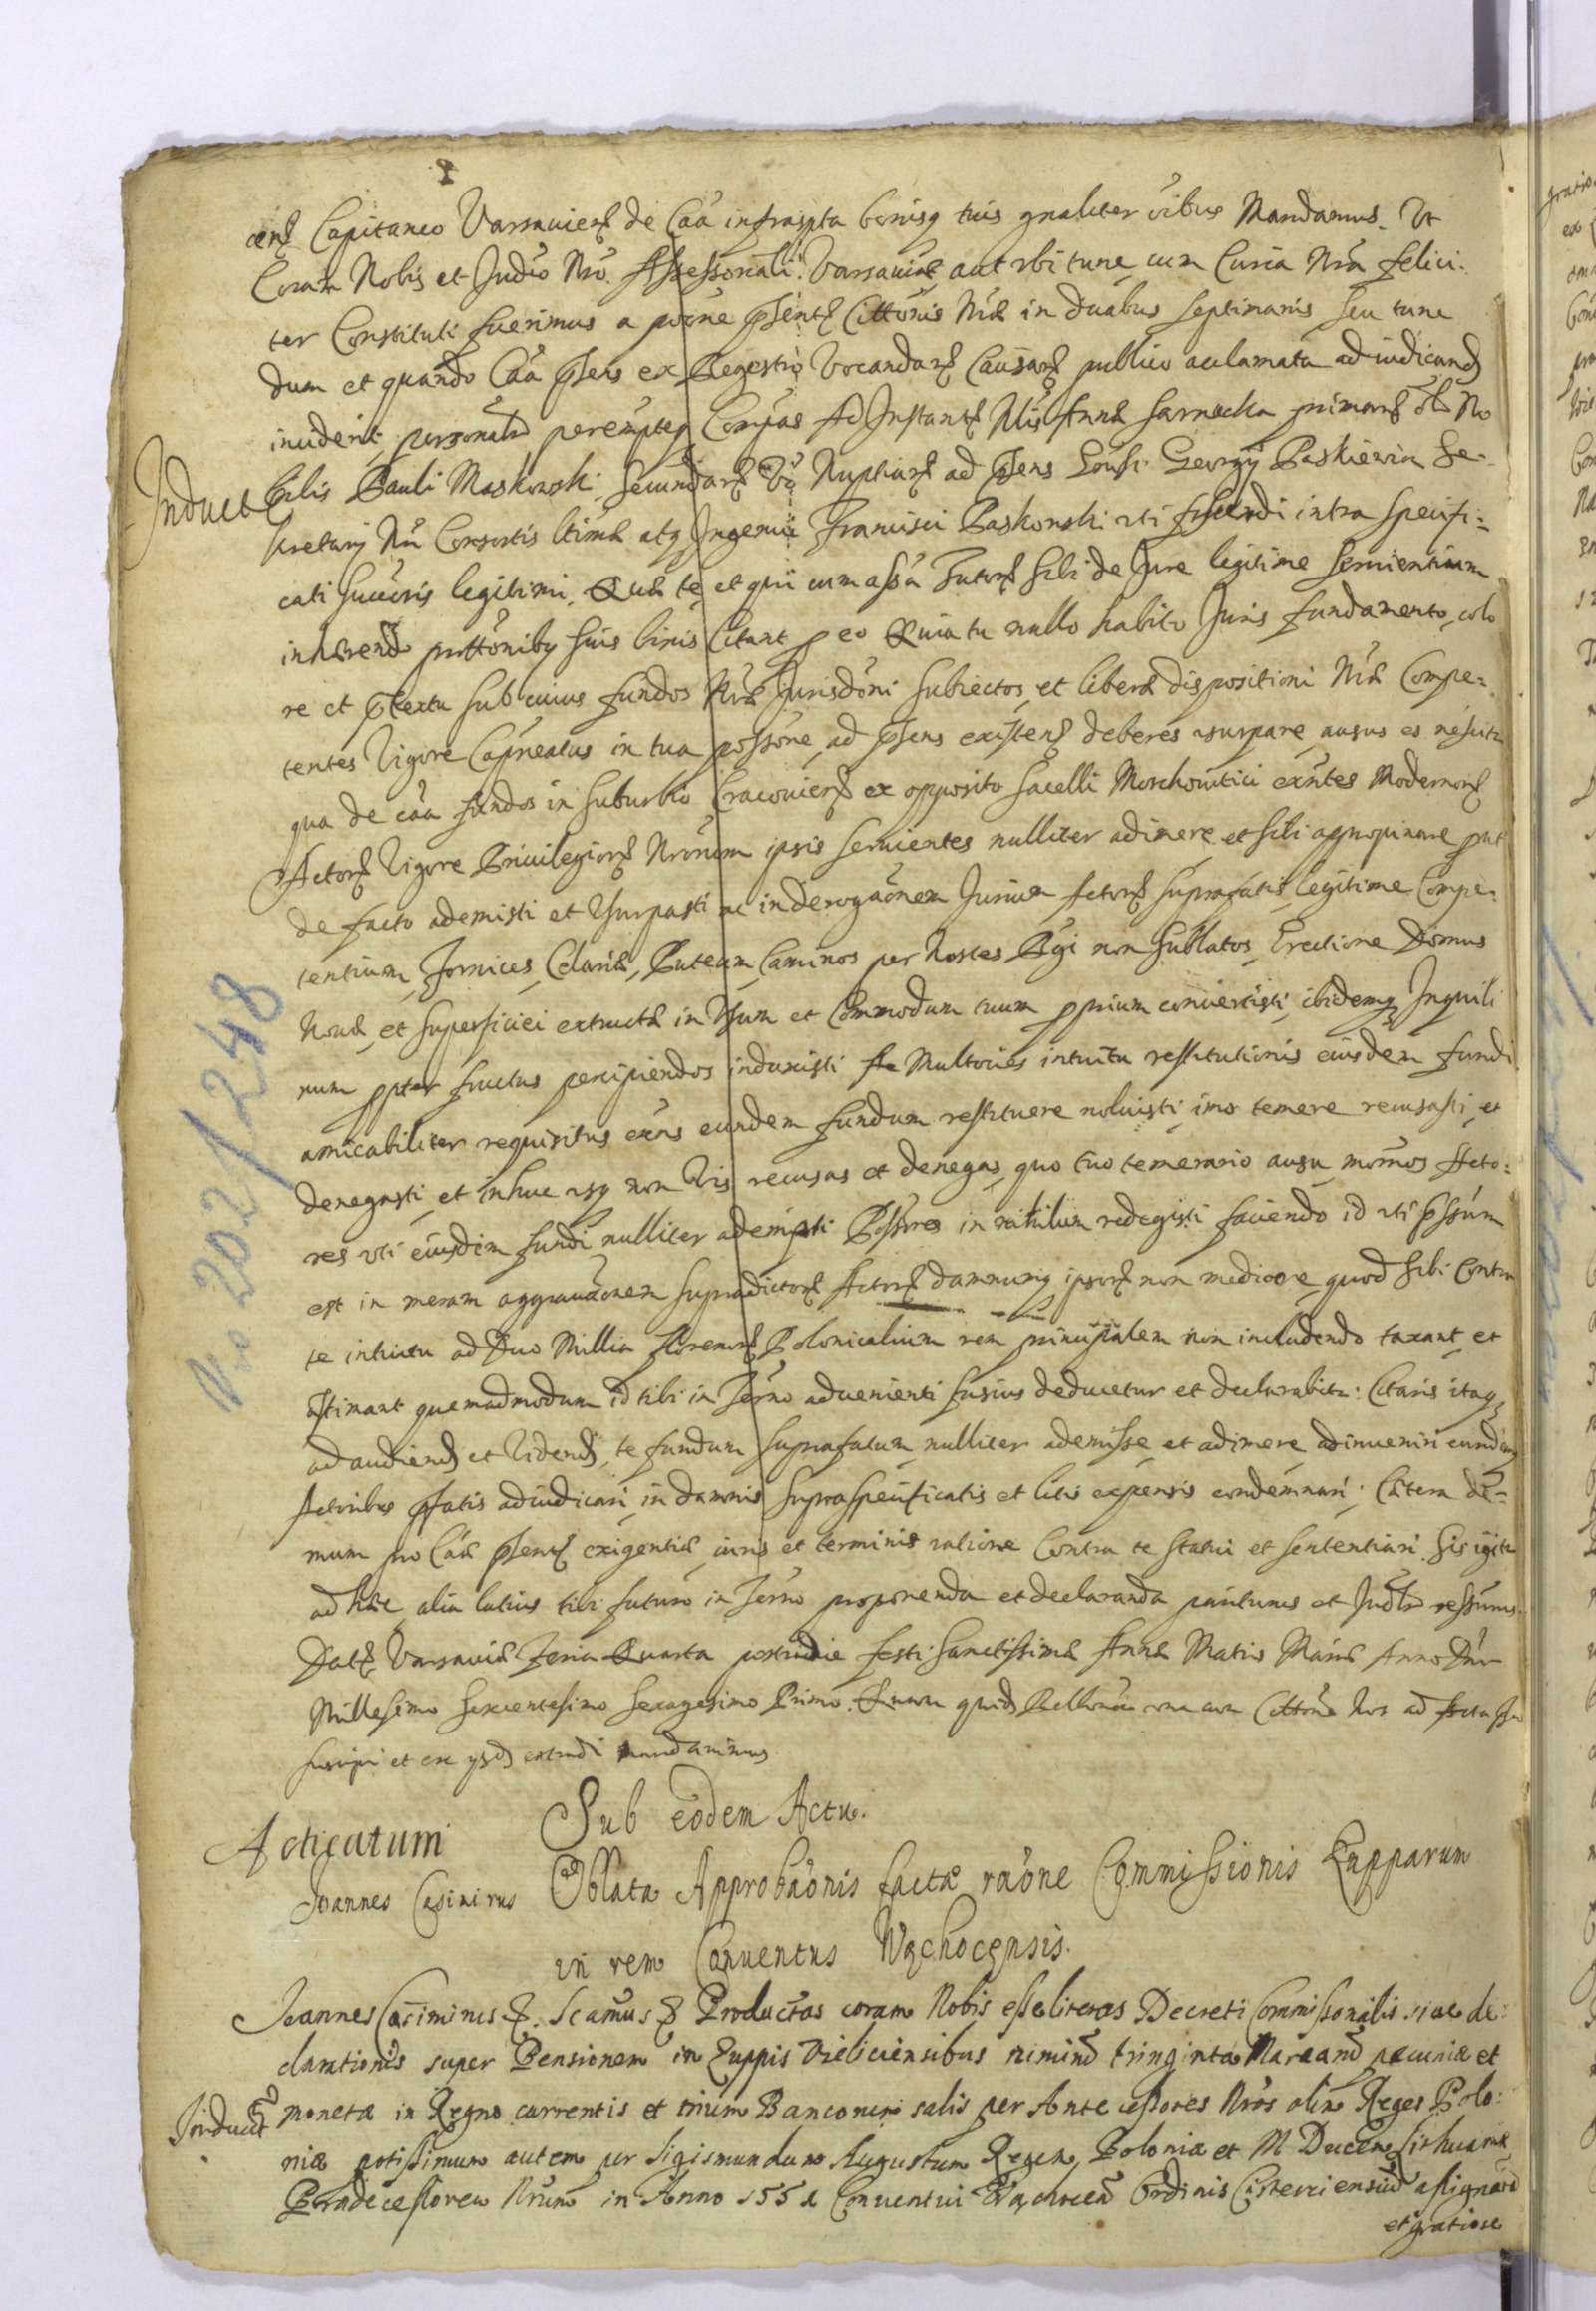 Capitaneo Varsauien de Caa infraspta bonisq tuis gnaliter oibus Mandamus. Vt
Coram Nobis et Judio Nro. Assessoriali. Varsauiæ aut vbi tunc cum Curia Nra felici-
ter Constituti fuerimus a poone Psent Cittonis Nræ in duabus septimanis seu tunc
dum et quando Caa Psens ex Regestro Vocandar Causar publico acclamata ad iudicand
inciderit, personalr peremptoq Compas Ad Instant Nlis Annæ Sarnacka primar olim No
Induct
bilis Pauli Maskowski Secundar vo Nuptiar ad Psens Georgij Paskiewicz Se-
kretarij Nri Consortis ltimæ atq Ingenui Francisci Paskowski vti intra specifi-
cati Succoris legitimi. Quæ te et qui cum assa Tutor sibi de Jure legitime seruientium
inhærendo prottonibq suis binis Citant p eo Quia tu nullo habito Juris fundamento, colo
re et Ptextu sub cuius fundos Nræ Jurisdoni subiectos, et liberæ dispositioni Nræ Compe-
tentes Vigore Capneatus in tua possone, ad Psens existen deberes vsurpare, ausus es nescitr
qua de caa fundos in suburbio Cracouien ex opposito Sacelli Moschouitici exntes Modernor
Actor Vigore Priuilegior Nrorum ipsis seruientes nulliter adimere, et sibi appropinare put
de facto ademisti et Vsurpasti ac in derogaonem Jurium Actor suprafatis legitime Compe-
tentium, Fornices, Celaria, Puteum, Caminos per hostes Rgi non sublatos, Erectione Domus
Nouæ, et superficiei extructæ in Vsum et Commodum tuum pprium conuertisti, ibidemq Inquili
num ppter fructus percipiendos induxisti Multoties intuitu restitutionis eiusdem fundi
amicabiliter requisitus exns eundem fundum restituere noluisti, imo temere recusasti, et
denegasti, et in huc vsq non Vis recusas et denegas, quo tuo temerario ausu, mornos Acto-
res vti eiusdem fundi nulliter adempti Possres in nihilum redegisti faciendo id vti Pssum
est in meram aggrauaonem supradictor Actor damnumq ipsor non mediocre, quod sibi Contra
te intuitu ad Duo Millia florenor Polonicalium rem principalem non includendo taxant et
æstimant quemadmodum id tibi in Termo aduenienti fusius deducetur et declarabitr: Citaris itaq
ad audiend et Vidend, te fundum suprafatum nulliter ademisse, et adimere, adinueniri eundemq
Actoribus Pfatis adiudicari, in damnis supraspecificatis et litis expensis condemnari; Cætera de-
mum pro Caæ Psent exigentia iuris et terminis ratione Contra te statui et sententiari. Sis igitr
ad hæc, alia latius tibi futuro in Termo proponenda et declaranda pariturus et Judlr ressurus.
Dat Varsauiæ Feria Quarta postridie festi Sanctissimæ Annæ Matris Mariæ Anno Dni
Millesimo Sexcentesimo Sexagesimo Primo. quid vna cum Cittone Nos ad Acta
suscipi et ex ysd extradi mandauimus
Sub eodem Actu.
Acticatum
Joannes Casimirus
Oblata Approbaonis factæ raone Commissionis Zupparum
in rem Conuentus Wąchocensis.
Joannes Casimirus &. Scamus & Productas coram Nobis esse literas Decreti Commissorialis siue de-
clarationis super Pensionem in Zuppis Vieliciensibus nimirũ tringinta Marcarũ pecuniæ et
Induct
monetæ in Regno currentis et trium Banconum salis per Antecessores Nros olim Reges Polo-
niæ potissimum autem per Sigismundum Augustum Regem Poloniæ et M Ducem Lithuaniæ
Prædecessorem Nrum in Anno 155 Conuentui Wachocen Ordinis Cisterciensiũ assignatã
et gratiose
Nro 202/1248